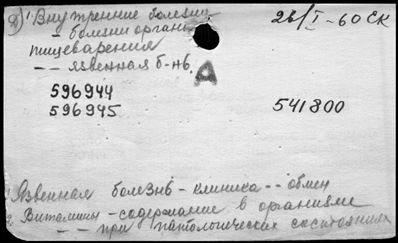 Д) Внутренние болезни 26/I-60 СК
- болезни орган
пищеварения
- - язвенная б-нь
А
596944
596945 541800
1) Язвенная болезнь - клиника - - обмен
2. Витамины - содержание в организме
- - при патологических состояниях